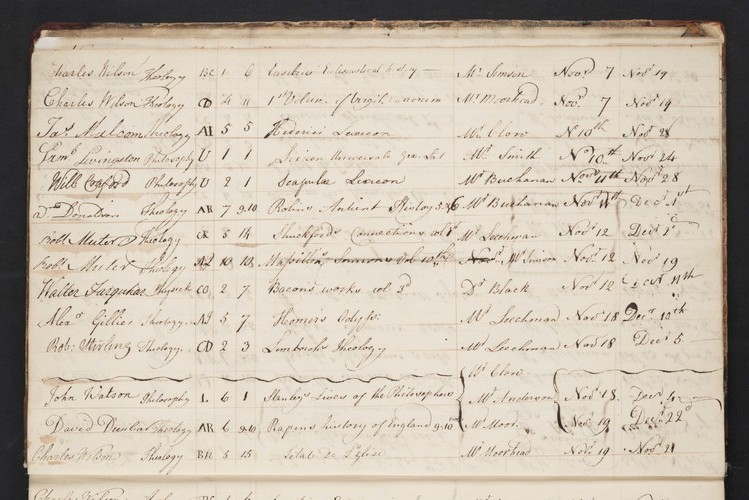 Charles Wilson Theology BE 1 6 Eusebius Eclesiastical history Mr Simson Novr 7 Novr 19
Charles Wilson Theology 4 11 1st Volum of Virgil Mr Moorhead Novr 7 Novr 19
Jas Malcom Theology AI 5 5 Hederici Lexicon Mr Clow N 10th Novr 28
Livingston Philosophy U 1 1 Lexicon Mr Smith Nov 10th Novr 24
Will Craford Philosophy U 2 1 Scapulae Lexicon Mr Buchanan Novr 11th Novr 28
Donalson Theology AR 7 9.10 Rolins Antient History 5 & 6 Mr Buchanan Novr 11th Decr 1st
Robt Meiter Theology 5 14 Shuckfords Connections vol Mr Leechman Novr 12 Decr
Robt Meiter Theology 10 10 Massillon Sermons Vol 10th Mr Simson Novr 12 Nov 19
Walter Farquhar Physick CO 2 7 Bacons works vol 3d Dr Black Novr 12 Decr 11th
Alexr Gillies Theology AI 5 7 Homer's Odyss: Mr Leechman Novr 18 Decr 10th
Robt Stirling Theology CD 2 3 Limborchs Theology Mr Leechman Novr 18 Decr 5
Mr Clow
John Watson Philosophy L 6 1 Stanley's Lives of the Philosophers Mr Anderson Novr 18 Decr 4
David Dunbar Theology AR 6 9.10 Rapins history of England 9.10 Mr Moor Novr 19 Decr 22d
Charles Wilson Theology BR 5 15 de l'Eglise Mr Moorhead Novr 19 Novr 21
Charles Wilson